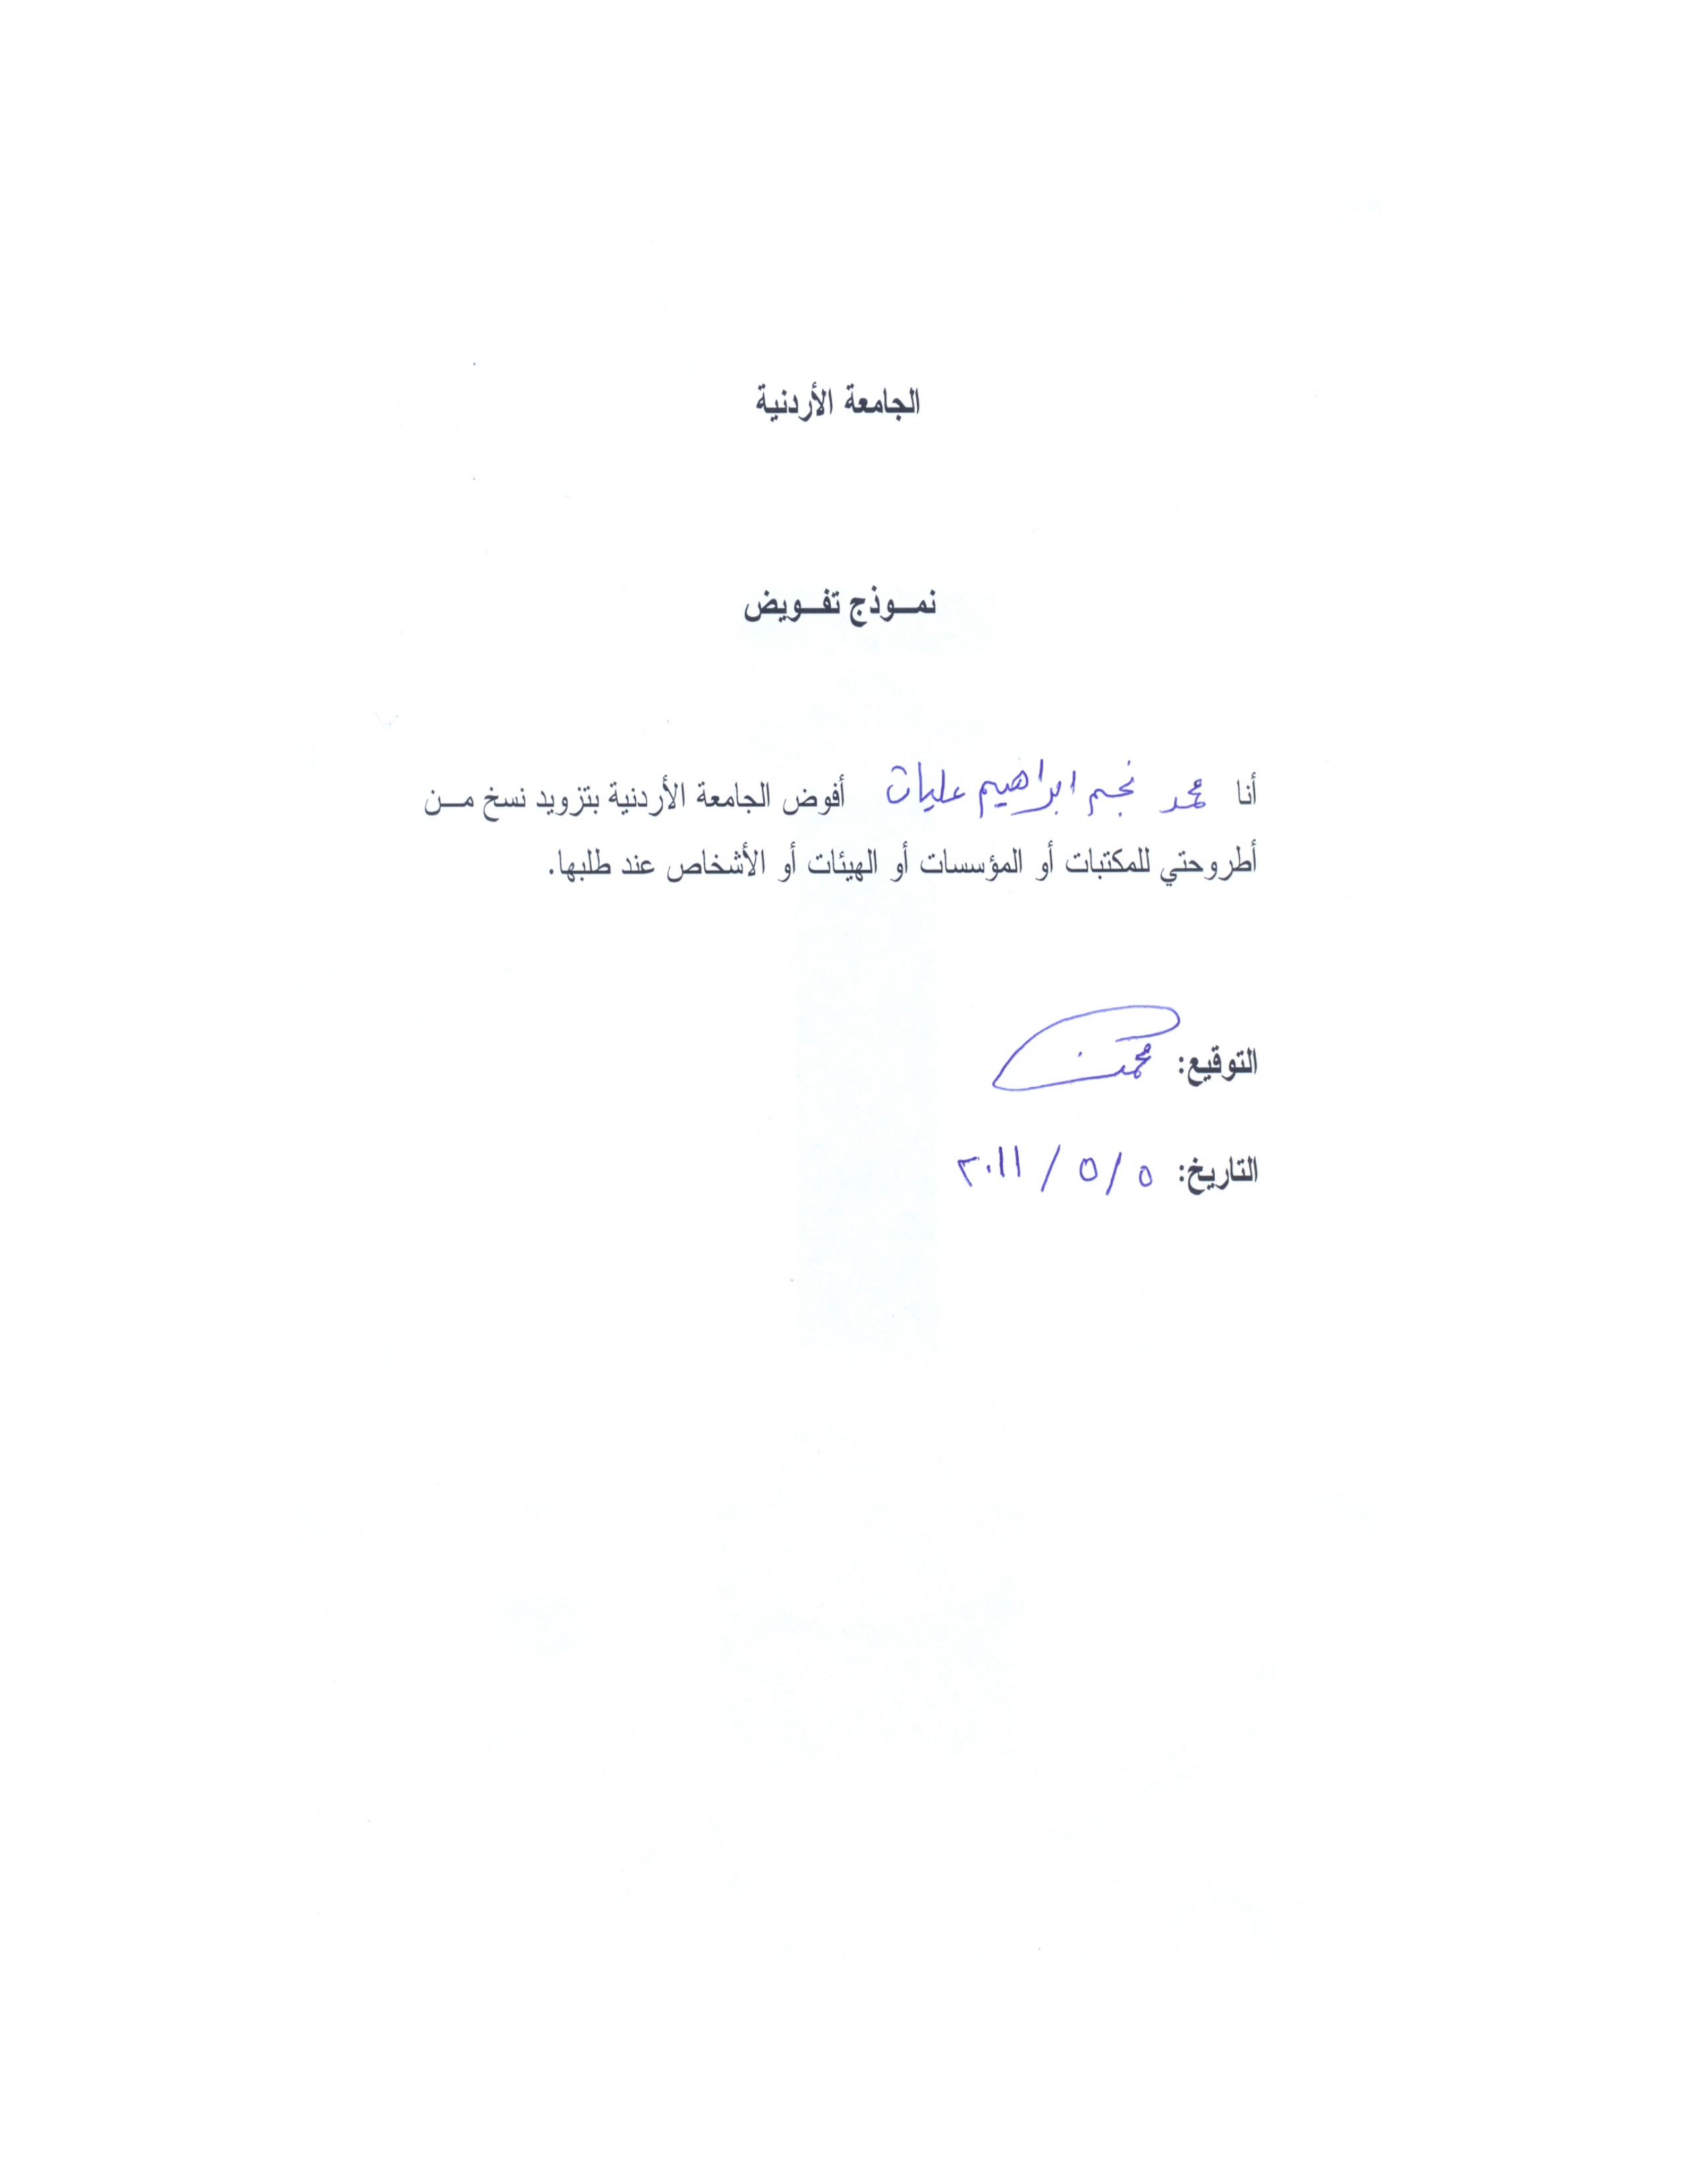 الجامعة الأردنية
نمـــوذج تفـــويض
أنا محمد نجيم ابراهيم عليان أفوض الجامعة الأردنية بتزويد نسخ مـــن
أطروحتي للمكتبات أو المؤسسات أو الهيئات أو الأشخاص عند طلبها.
التوقيع: محمد
التاريخ: ٥ / ٥ / ٢٠١١